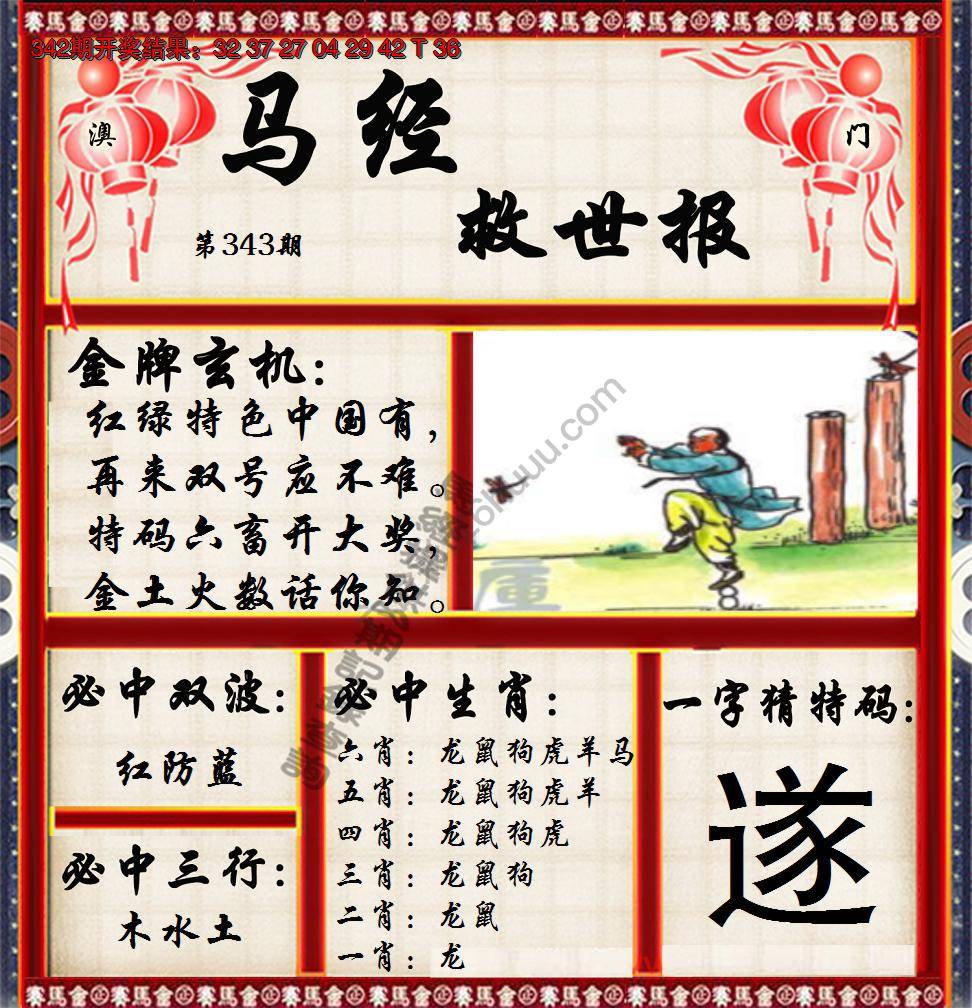 342期开奖结果：32 37 27 04 29 42 T 36
澳 门
马经
救世报
第343期
金牌玄机：
红绿特色中国有，
再来双号应不难。
特码六畜开大奖，
金土火数话你知。
必中双波：
红防蓝
必中三行：
木水土
必中生肖：
六肖：龙鼠狗虎羊马
五肖：龙鼠狗虎羊
四肖：龙鼠狗虎
三肖：龙鼠狗
二肖：龙鼠
一肖：龙
一字猜特码：
遂